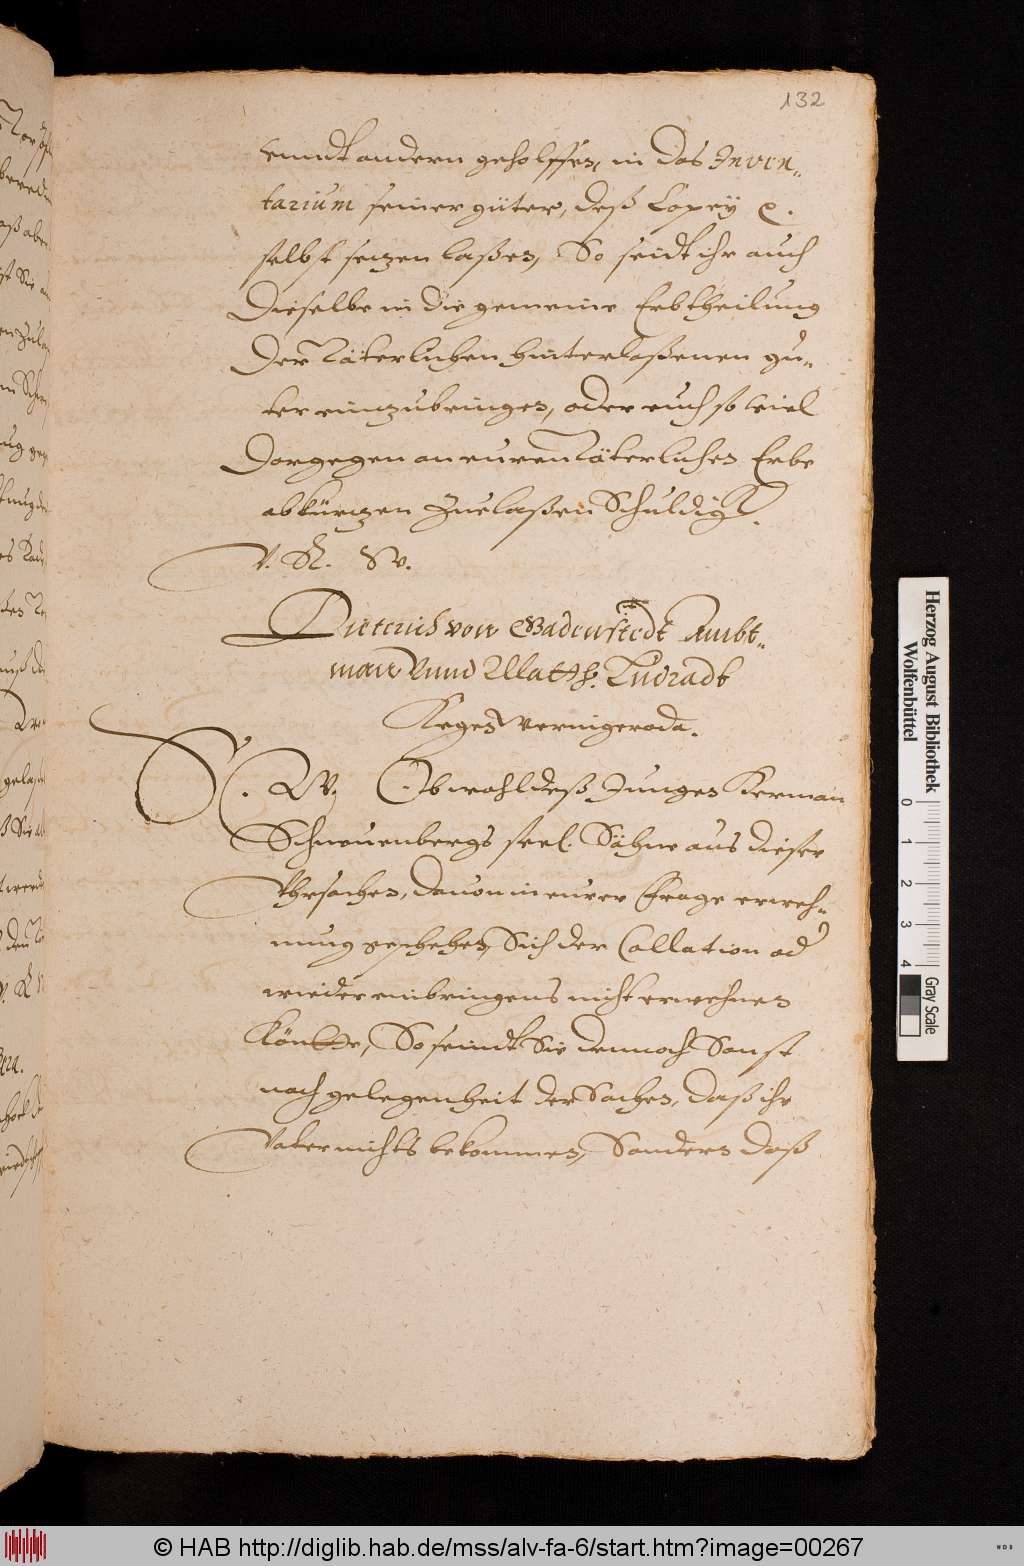 132
vnndt andern geholffen, in das Inven-
tarium seiner güter, deß Copey e.
selbst setzen laßen, So seidt ihr auch
Dieselbe in die gemeine Erbtheilung
Der Väterlichen hinterlaßenen gü-
ter einzubringen, oder euch so viel
Dargegen an euren Väterlichen Erbe
abkürtzen zuelaßen Schuldig
V. R. W.
Dieterich von Gadenstedt Ambt-
man Vnnd Matth. Ludradt
Kegen Wernigeroda.
Ob wohl deß Jungen Herman
Schnauenbergs seel. Söhne aus dieser
Vhrsachen, dauon in eurer Frage erweh-
nung geschehen, Sich der Collation od
wieder einbringens nicht erwehren
Köntte, So seindt Sie dennoch Sonst
nach gelegenheit der Sachen, daß ihr
Vater nichts bekommen, Sondern daß
Herzog August Bibliothek
Wolfenbüttel
0 1 2 3 4
Gray Scale
© HAB http://diglib.hab.de/mss/alv-fa-6/start.htm?image=00267